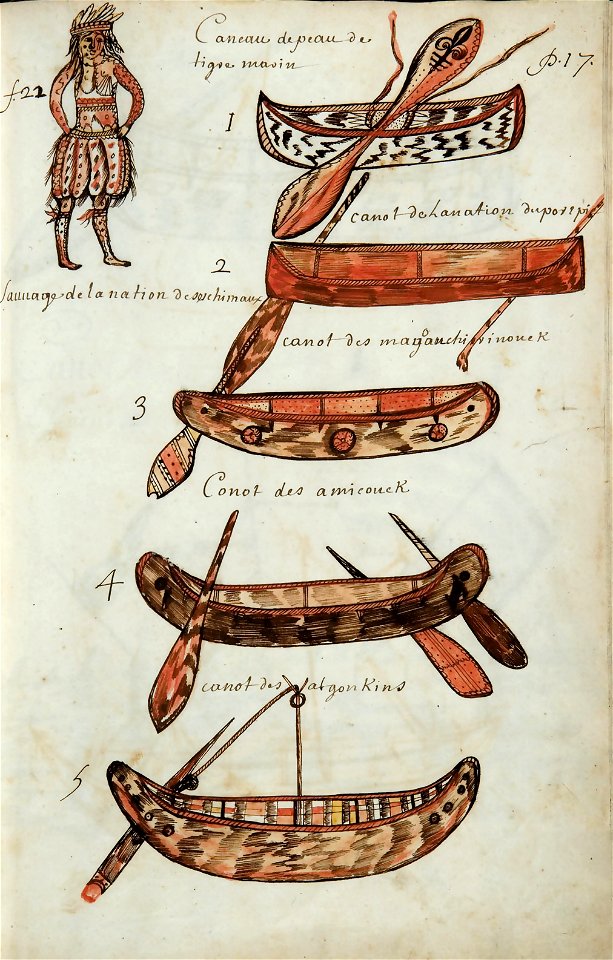 Caneau de peau de
tigre marin
p. 17.
f. 22
1
canot de la nation du porc epic
2
sauuage de la nation des eschimaux
canot des
3
Conot des amicouek
4
canot des algonkins
5